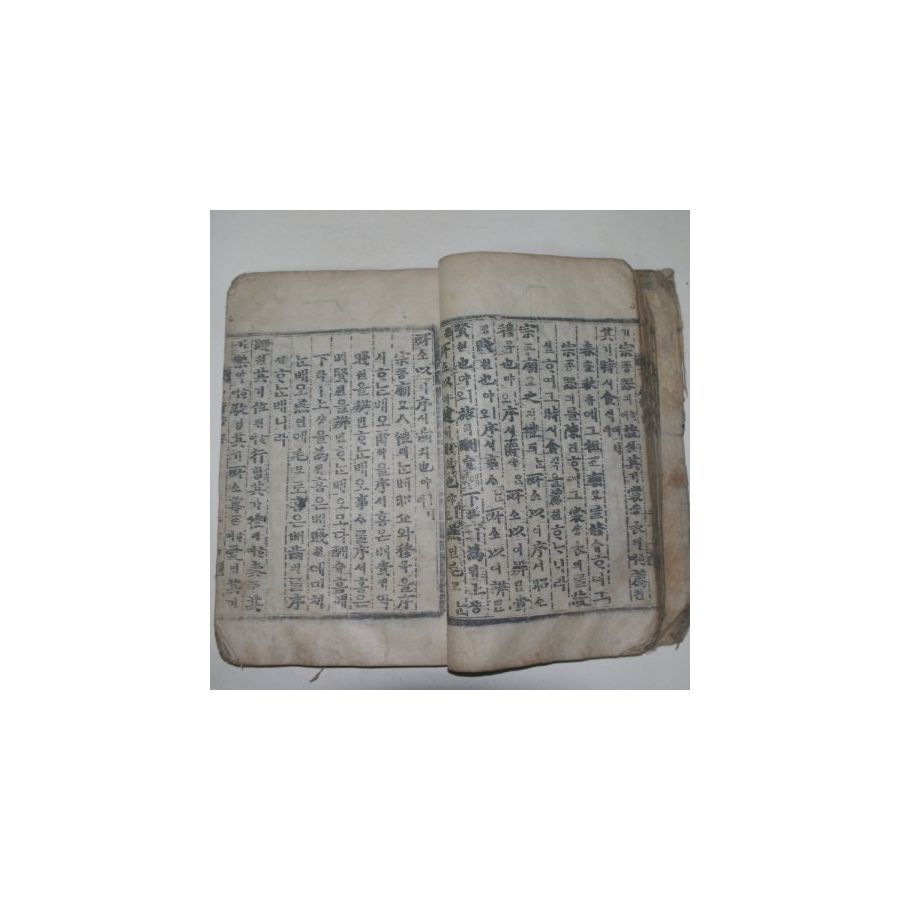 기宗종器긔ᄒᆞ며設셜其기裳샹衣의ᄒᆞ며薦쳔
其기時시食식이니라
春츈秋츄에그祖조廟묘를修슈ᄒᆞ며그
宗종器긔를陳딘ᄒᆞ며그裳샹衣의를設
셜ᄒᆞ며그時시食식을薦쳔ᄒᆞᄂᆞ니라
宗종廟묘之지禮례ᄂᆞᆫ所소以이序셔昭쇼
穆목也야ㅣ오序셔爵쟉은所소以이辨변貴
귀賤쳔也야ㅣ오序셔事ᄉᆞᄂᆞᆫ所소以이辨변
賢현也야ㅣ오旅려酬슈애下하ㅣ爲위上샹은
所소以이逮톄賤쳔也야ㅣ오燕연毛모ᄂᆞᆫ
所소以이序셔齒치也야ㅣ니라
宗종廟묘ㅅ禮례ᄂᆞᆫ昭쇼와穆목을序
셔ᄒᆞᄂᆞᆫ배오爵쟉을序셔홈은貴귀며
賤쳔을辨변ᄒᆞᄂᆞᆫ배오事ᄉᆞ를序셔홈은
賢현을辨변ᄒᆞᄂᆞᆫ배오모다酬슈홈애
下하ㅣ上샹을爲위홈은賤쳔에미처
ᄂᆞᆫ배오燕연에毛모로홈은齒치를序
셔ᄒᆞᄂᆞᆫ배니라
踐쳔其기位위ᄒᆞ야行ᄒᆡᆼ其기禮례ᄒᆞ며奏주其
기樂악ᄒᆞ며敬경其기所소尊존ᄒᆞ며愛ᄋᆡ其기